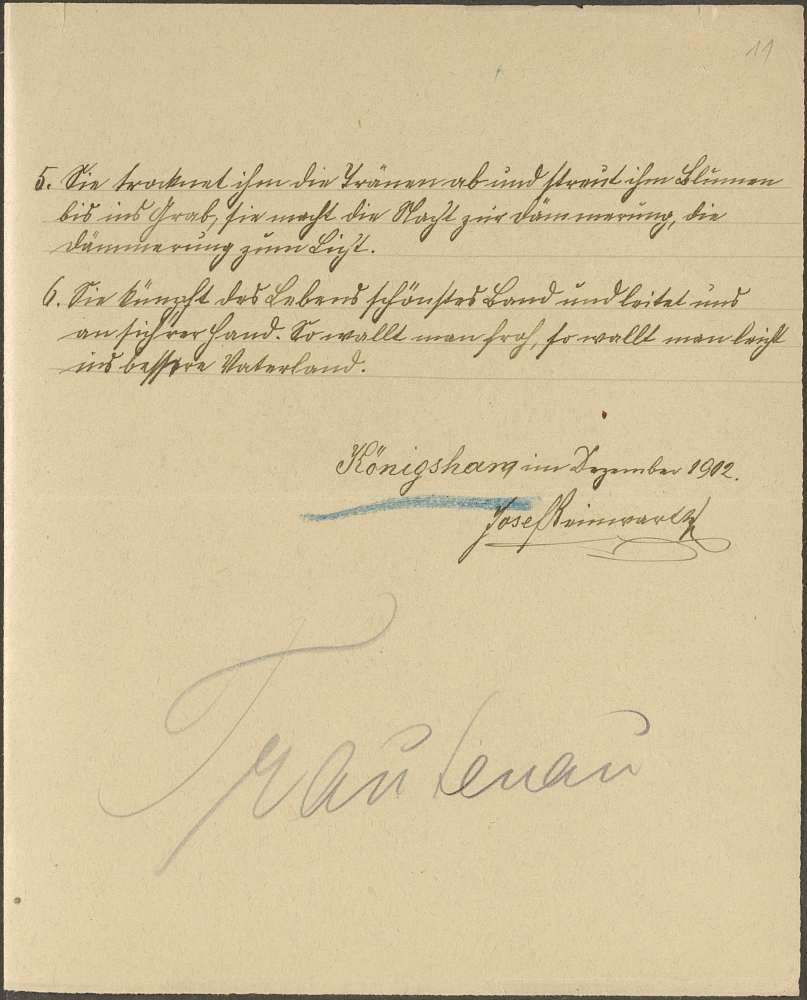 11
5. Sie trocknet ihm die Tränen ab und streut ihm Blumen
bis ins Grab, sie macht die Nacht zur Dämmerung, die
Dämmerung zum Licht.
6. Sie knüpft des Lebens schönstes Band und leitet uns
an sich'rer Hand. So wallt man froh, so wallt man leicht
ins bessere Vaterland.
Königshan, im Dezember 1912.
Josef Reinwarth
Trautenau